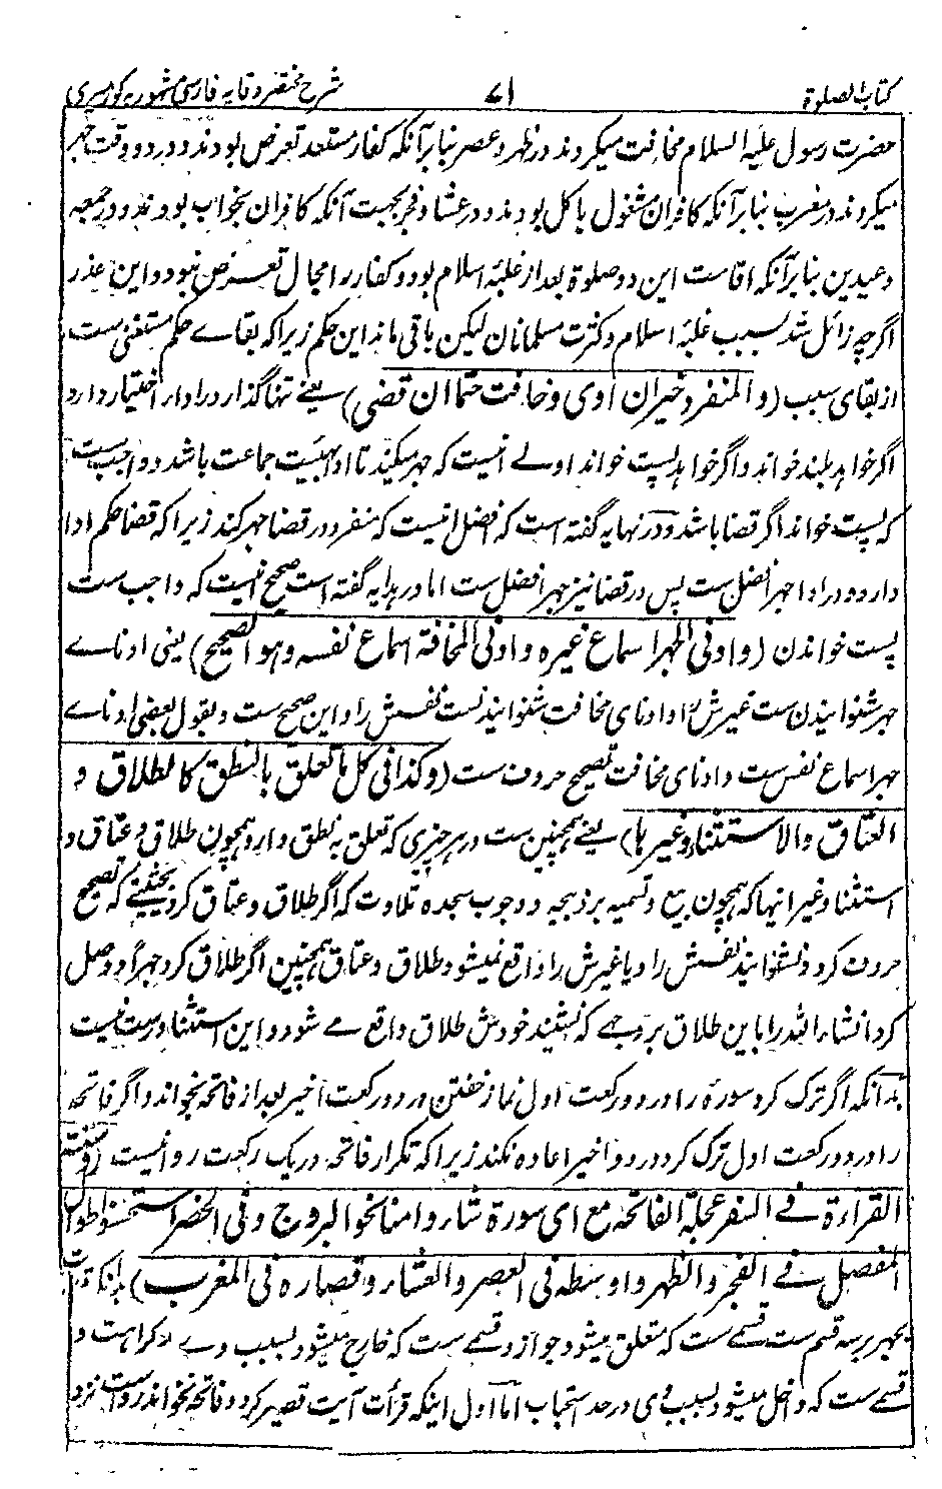 کتاب الصلوة ۷۱ شرح مختصر وقایه فارسی مشهور به کور میری
حضرت رسول علیه السلام مخافت میکردند در ظهر و عصر بنابر آنکه کفار مستعد تعرض بودند و در دو وقت جهر
میکردند در مغرب بنابر آنکه کافران مشغول باکل بودند و در عشا و فجر بجهت آنکه کافران بخواب بودند و در جمعه
و عیدین بنابر آنکه اقامت این دو صلوة بعد از غلبۀ اسلام بود و کفار را مجال تعرض نبود و این عذر
اگرچه زائل شد بسبب غلبۀ اسلام و کثرت مسلمانان لیکن باقی ماند این حکم زیرا که بقاے حکم مستغنی ست
از بقای سبب (والمنفرد خیران ادی وخافت حتما ان قضی) یعنے تنها گذار در ادا اختیار دارد
اگر خواهد بلند خواند و اگر خواهد پست خواند اولے انیست که جهر میکند تا ادا بهیئت جماعت باشد و واجب ست
که پست خواند اگر قضا باشد و در نهایه گفته است که افضل انیست که منفرد در قضا جهر کند زیرا که قضا حکم ادا
دارد و در ادا جهر افضل ست پس در قضا نیز جهر افضل ست اما در هدایه گفته است صحیح انیست که واجب ست
پست خواندن (وادنی الجهر اسماع غیره وادنی المخافتة اسماع نفسه وهو الصحیح) یعنی ادناے
جهر شنوانیدن ست غیرش را و ادنای مخافت شنوانیدنست نفسش را و این صحیح ست و بقول بعضی ادناے
جهر اسماع نفس ست و ادنای مخافت تصحیح حروف ست (وکذا فی کل ما تعلق بالنطق کالطلاق و
العتاق والاستثناء وغیرها) یعنے همچنین ست در هر چیزی که تعلق به نطق دارد همچون طلاق و عتاق و
استثنا و غیر انها که همچون بیع و تسمیه بر ذبیحه و وجوب سجده تلاوت که اگر طلاق و عتاق کرد بحیثیتے که تصحیح
حروف کرد و نشنوانید نفسش را و یا غیرش را واقع نمیشود طلاق و عتاق همچنین اگر طلاق کرد جهرا و وصل
کرد انشاء الله را باین طلاق بر وجهے که نشنید خودش طلاق واقع مے شود و این استثنا درست نیست
بدانکه اگر ترک کرد سوره را در دو رکعت اول نماز خفتن در دو رکعت اخیر بعد از فاتحه بخواند و اگر فاتحه
را در دو رکعت اول ترک کرد در دو اخیر اعاده نکند زیرا که تکرار فاتحه در یک رکعت روا نیست (وسنة
القراءة فے السفر عجلة الفاتحة مع ای سورة شاء وامنا نحو البروج وفی الحضر استحسنوا طوال
المفصل فے الفجر والظهر واوسطه فی العصر والعشاء وقصاره فی المغرب) بدانکه قرأت
بر سه قسم ست قسمے ست که متعلق میشود جواز و قسمے ست که خارج میشود بسبب وے از کراهت و
قسمے ست که داخل میشود بسبب وی در حد استحباب اما اول اینکه قرأت آیت قصیر کرد و فاتحه نخواند رواست نزد